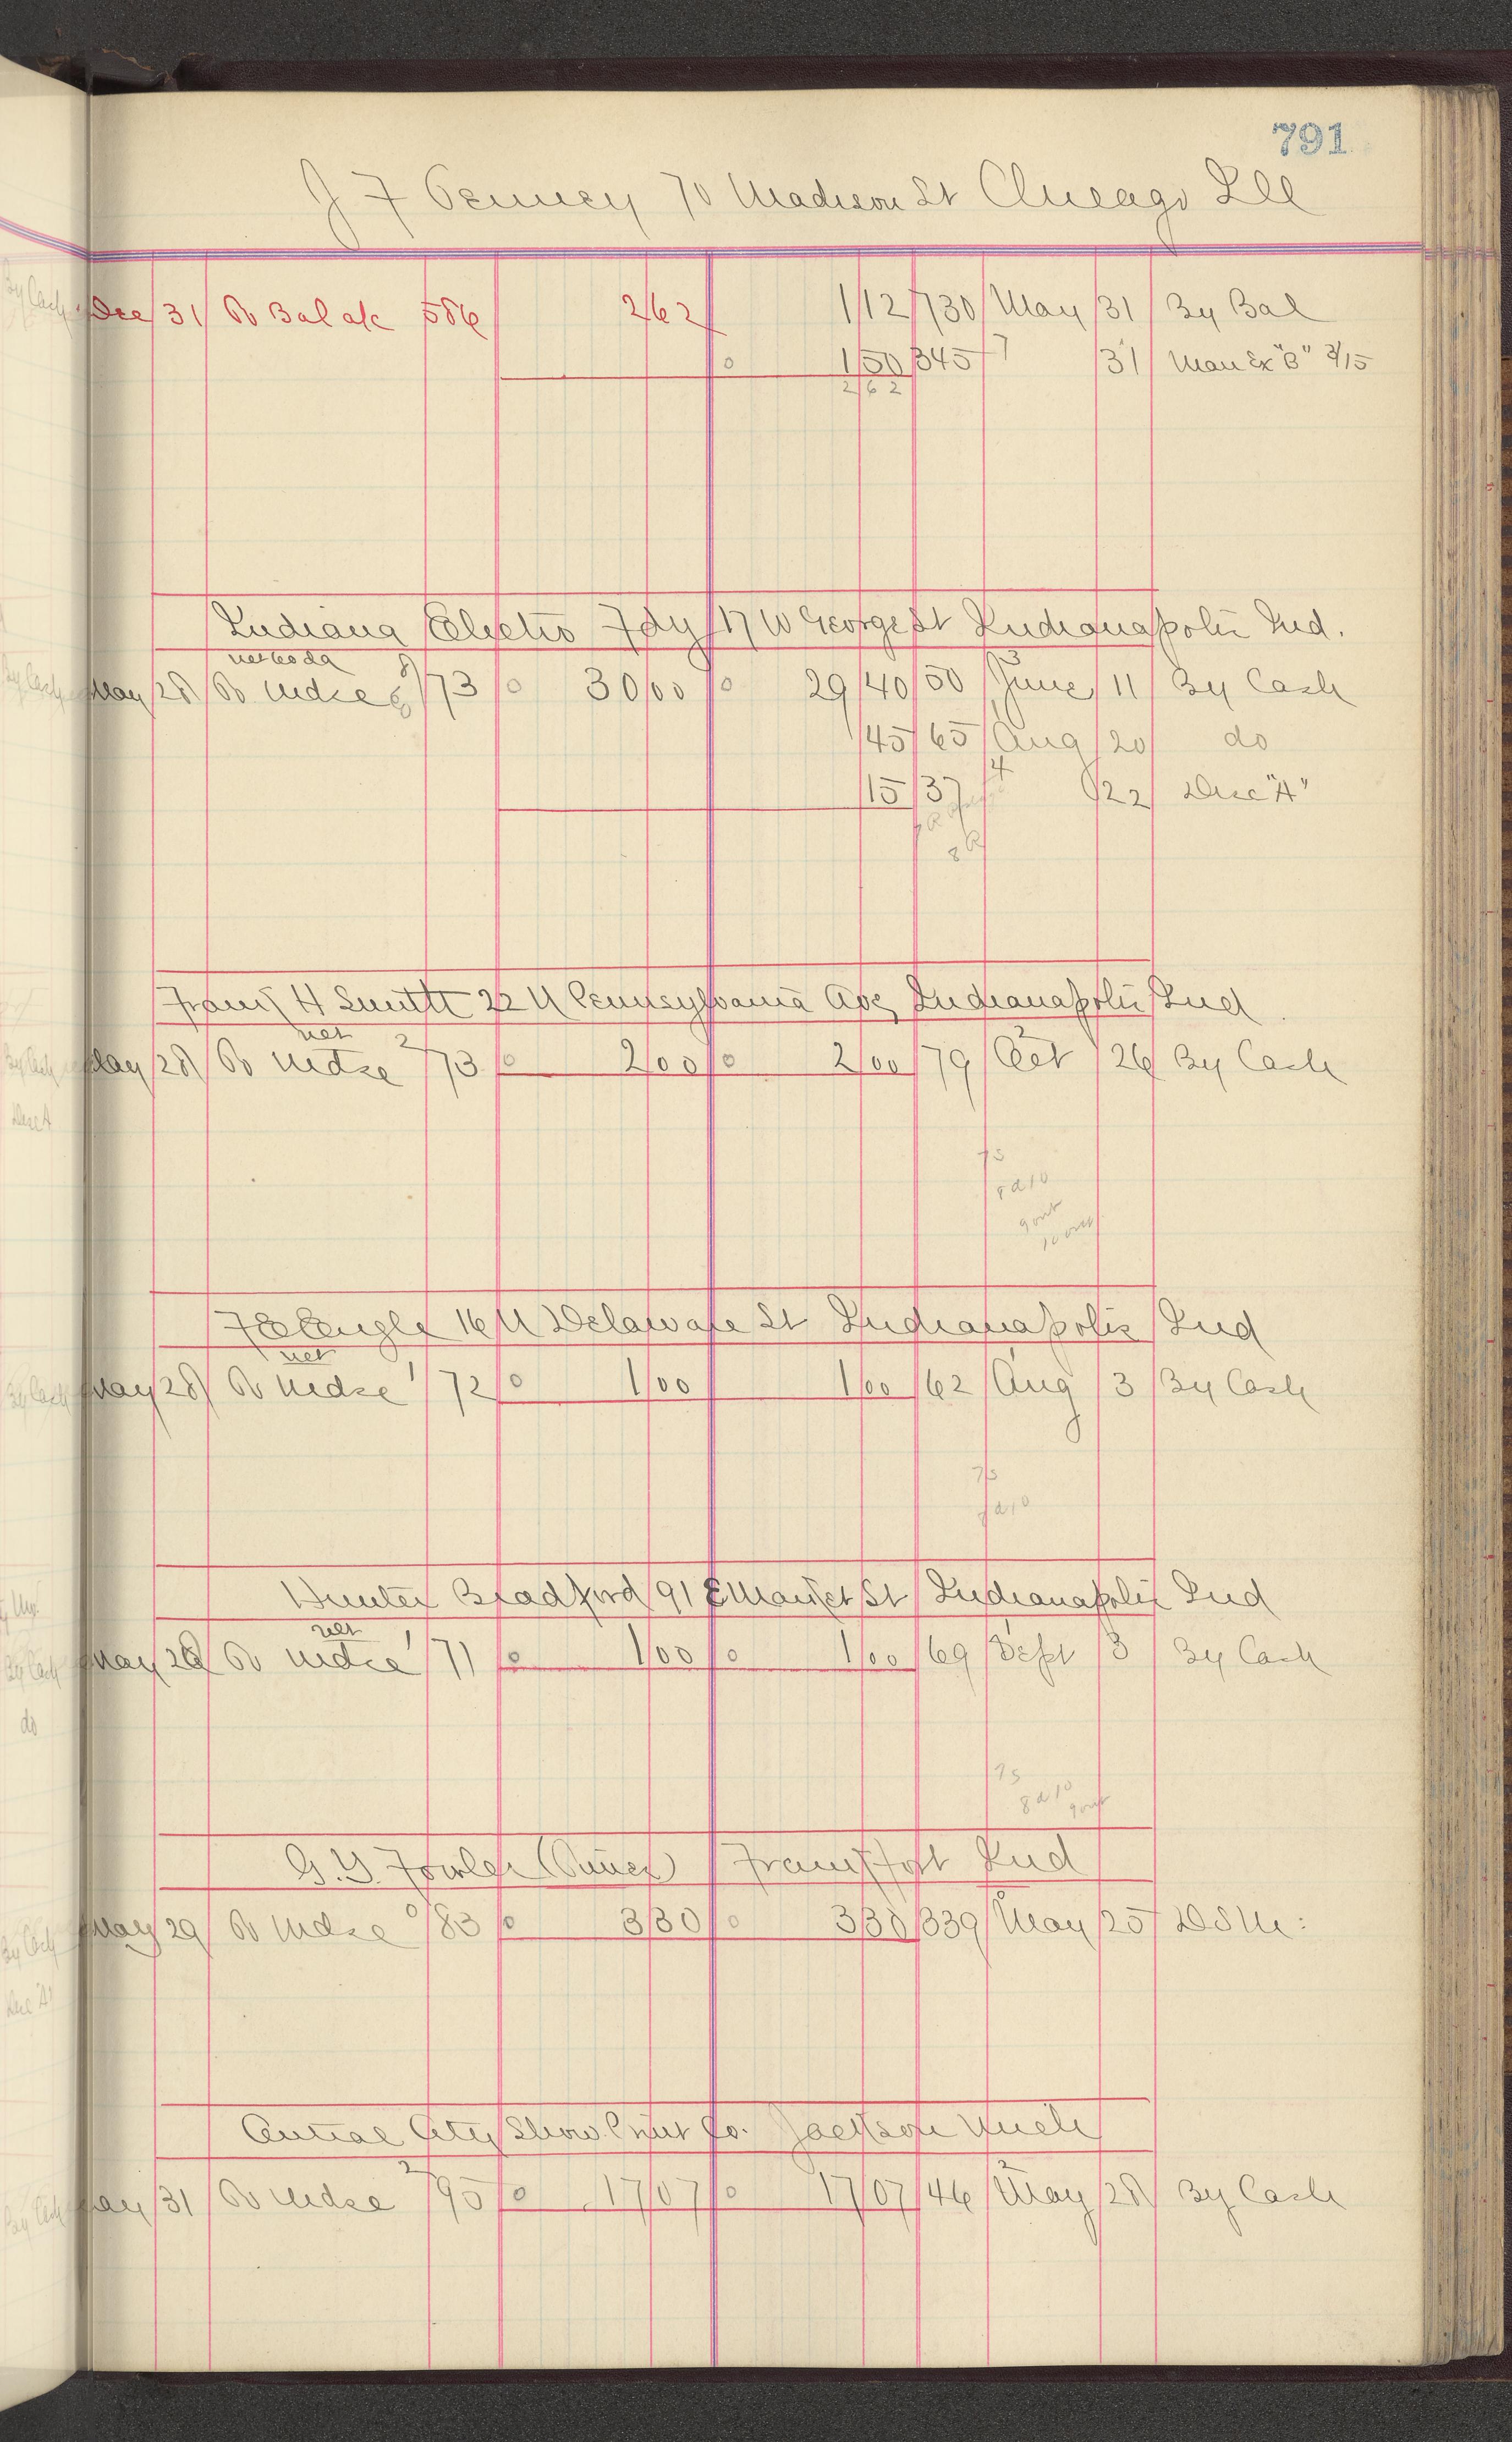 791
J F Penney 70 Madison St Chicago Ill
Dec 31 To Bal a/c 586 2 62 1 12 730 May 31 By Bal
0 1 50 345 7 31 Man Ex "B" 3/15
2 6 2
Indiana Electro Fdy 17 W George St Indianapolis Ind.
net 60 da
May 28 To Mdse 8 73 0 30 00 0 29 40 50 June 11 By Cash
45 65 Aug 20 do
15 37 4 22 Disc "A"
Frank H Smith 22 N Pennsylvania Ave Indianapolis Ind
net
May 28 To Mdse 2 73 0 2 00 0 2 00 79 Oct 26 By Cash
7 s
8 d 10
9 out
10 out
F E Engle 16 N Delaware St Indianapolis Ind
net
May 28 To Mdse 1 72 0 1 00 1 00 62 Aug 3 By Cash
7 s
8 d 10
Hunter Bradford 91 E Market St Indianapolis Ind
net
May 28 To Mdse 1 71 0 1 00 0 1 00 69 Sept 3 By Cash
7 s
8 d 10
9 out
G. Y. Fowler Frankfort Ind
May 29 To Mdse 0 83 0 3 30 0 3 30 339 May 25 D S M:
Central City Show Print Co. Jackson Mich
May 31 To Mdse 2 95 0 17 07 0 17 07 46 May 28 By Cash